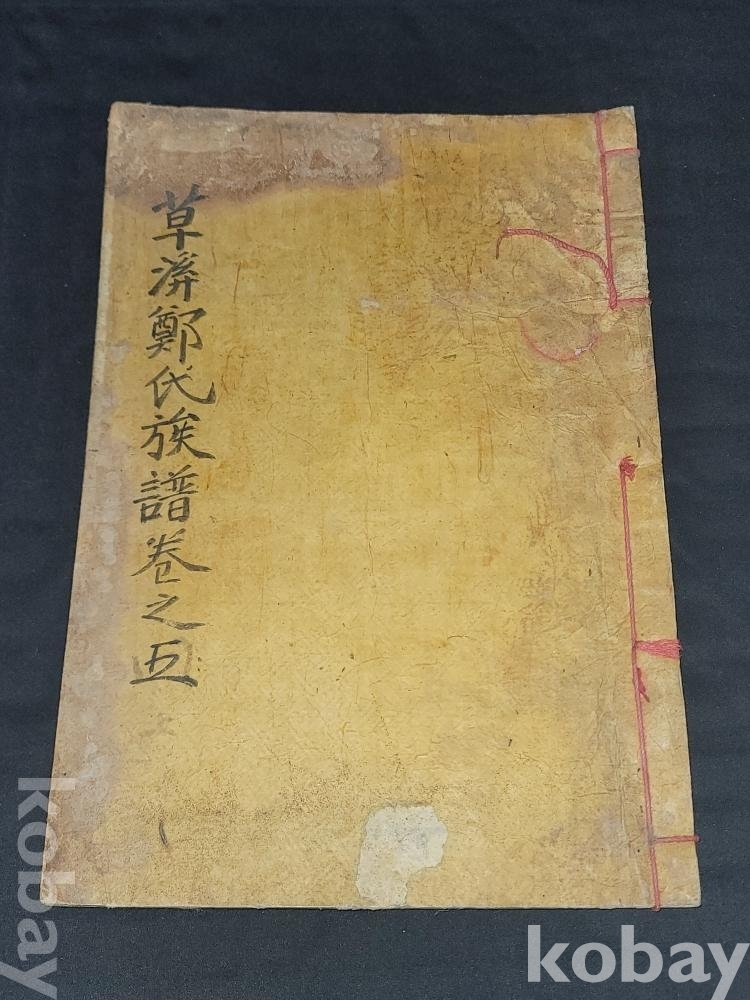 草溪鄭氏族譜卷之五
kobay
kobay